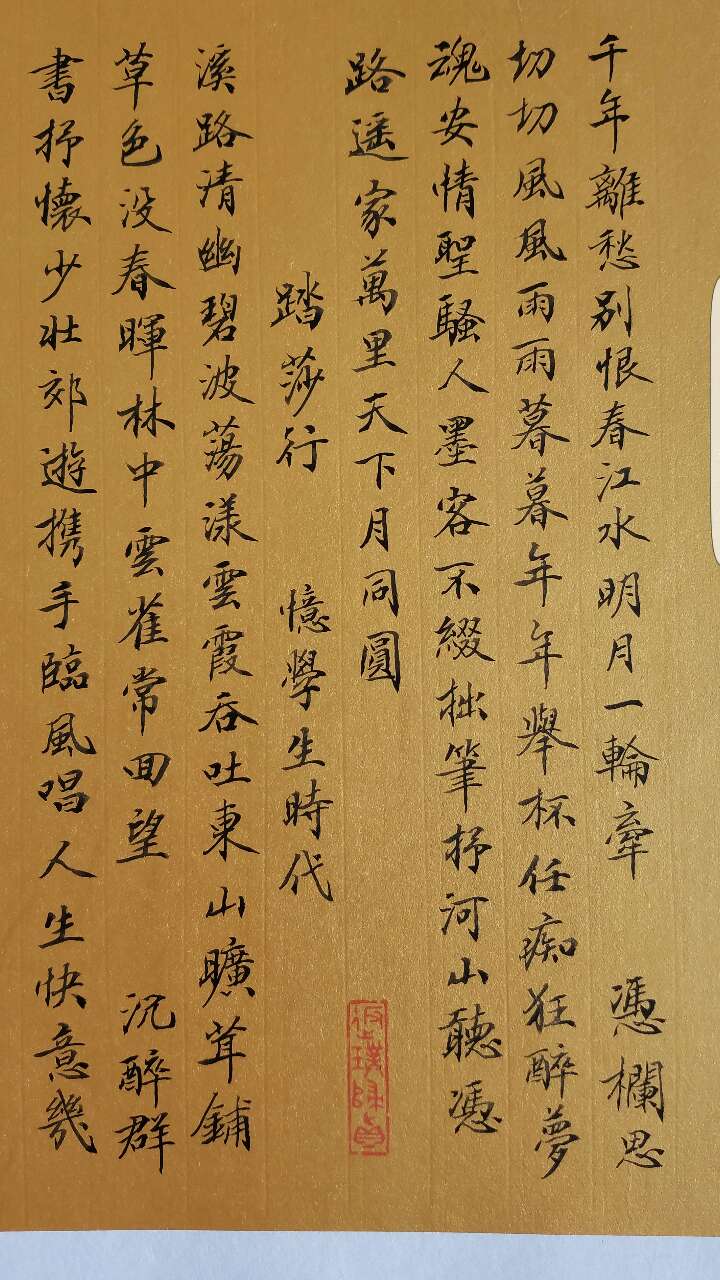 千年離愁別恨春江水明月一輪牽 憑欄思
切切風風雨雨暮暮年年舉杯任痴狂醉夢
魂安情聖騷人墨客不綴拙筆抒河山聽憑
路遥家萬里天下月同圓
踏莎行 憶學生時代
溪路清幽碧波蕩漾雲霞吞吐東山曠茸鋪
草色没春暉林中雲雀常回望 沉醉群
書抒懷少壯郊遊携手臨風唱人生快意幾